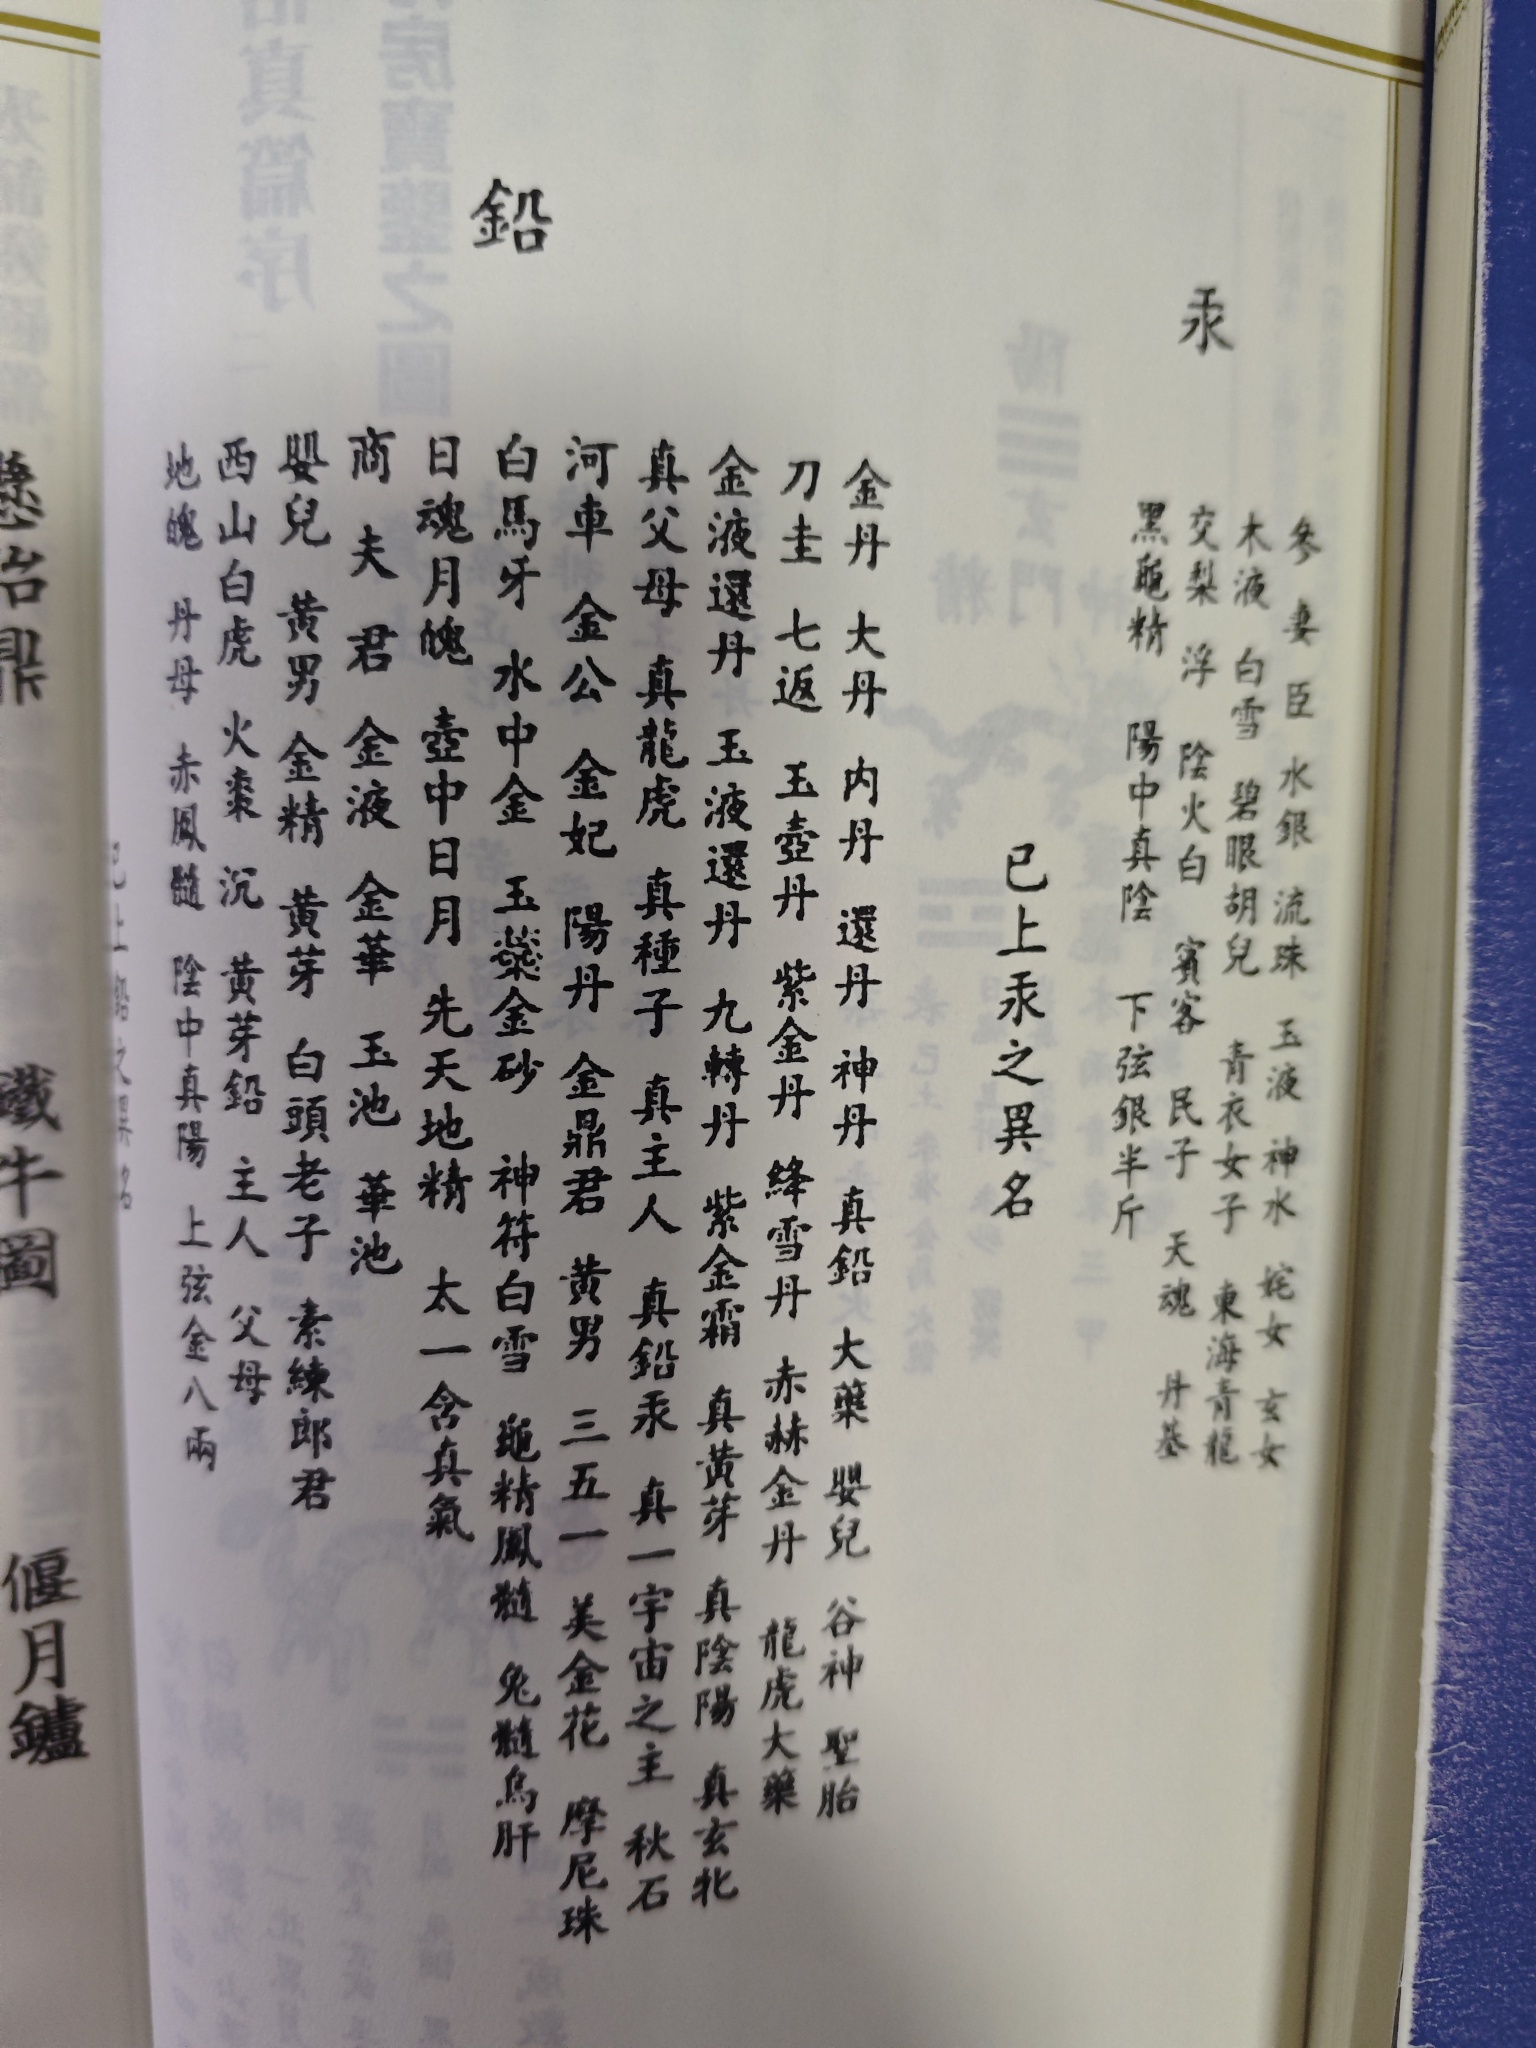 汞
參 妻 臣 水銀 流珠 玉液 神水 姹女 玄女
木液 白雪 碧眼胡兒 青衣女子 東海青龍
交梨 浮 陰火白 賓客 民子 天魂 丹基
黑龜精 陽中真陰 下弦銀半斤
已上汞之異名
金丹 大丹 內丹 還丹 神丹 真鉛 大藥 嬰兒 谷神 聖胎
刀圭 七返 玉壺丹 紫金丹 絳雪丹 赤赫金丹 龍虎大藥
金液還丹 玉液還丹 九轉丹 紫金霜 真黃芽 真陰陽 真玄牝
真父母 真龍虎 真種子 真主人 真鉛汞 真一宇宙之主 秋石
河車 金公 金妃 陽丹 金鼎君 黃男 三五一 美金花 摩尼珠
鉛
白馬牙 水中金 玉蘂金砂 神符白雪 龜精鳳髓 兔髓烏肝
日魂月魄 壺中日月 先天地精 太一含真氣
商 夫 君 金液 金華 玉池 華池
嬰兒 黃男 金精 黃芽 白頭老子 素練郎君
西山白虎 火棗 沉 黃芽鉛 主人 父母
地魄 丹母 赤鳳髓 陰中真陽 上弦金八兩
已上鉛之異名
懸胎鼎 鐵牛圖 偃月鑪